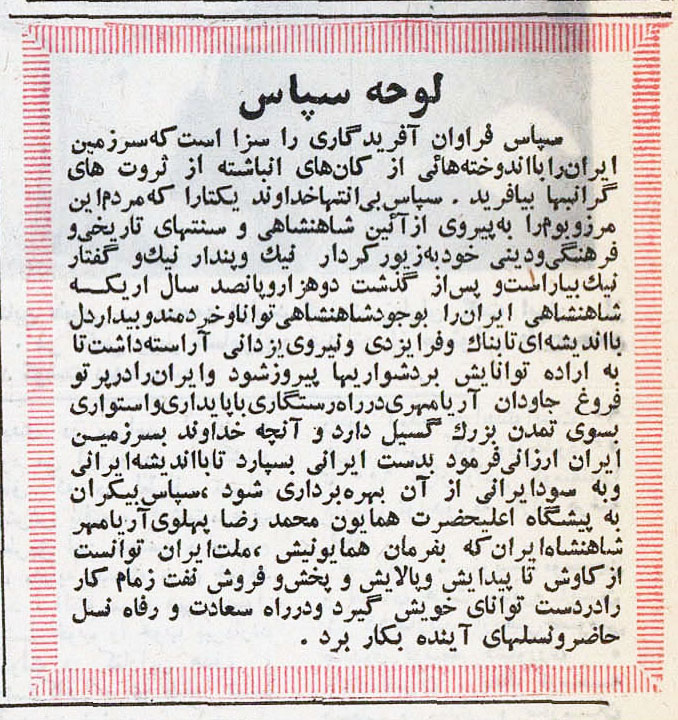 لوحه سپاس
سپاس فراوان آفریدگاری را سزا است که سرزمین
ایران را با اندوخته‌هائی از کان‌های انباشته از ثروت های
گرانبها بیافرید . سپاس بی‌انتها خداوند یکتارا که مردم این
مرزوبوم را به پیروی از آئین شاهنشاهی و سنتهای تاریخی و
فرهنگی و دینی خود به زیور کردار نیك وپندار نیك و گفتار
نیك بیاراست و پس از گذشت دوهزار و پانصد سال اریکه
شاهنشاهی ایران را بوجود شاهنشاهی توانا و خردمند و بیداردل
با اندیشه‌ای تابناك وفرایزدی ونیروی یزدانی آراسته داشت تا
به اراده توانایش بردشواریها پیروز شود وایران را درپرتو
فروغ جاودان آریامهری در راه رستگاری با پایداری و استواری
بسوی تمدن بزرك گسیل دارد و آنچه خداوند بسرزمین
ایران ارزانی فرمود بدست ایرانی بسپارد تا با اندیشه ایرانی
وبه سود ایرانی از آن بهره‌برداری شود ،سپاس بیکران
به پیشگاه اعلیحضرت همایون محمد رضا پهلوی آریامهر
شاهنشاه ایران که بفرمان همایونیش ،ملت ایران توانست
از کاوش تا پیدایش وپالایش و پخش و فروش نفت زمام کار
را دردست توانای خویش گیرد ودرراه سعادت و رفاه نسل
حاضر و نسلهای آینده بکار برد .